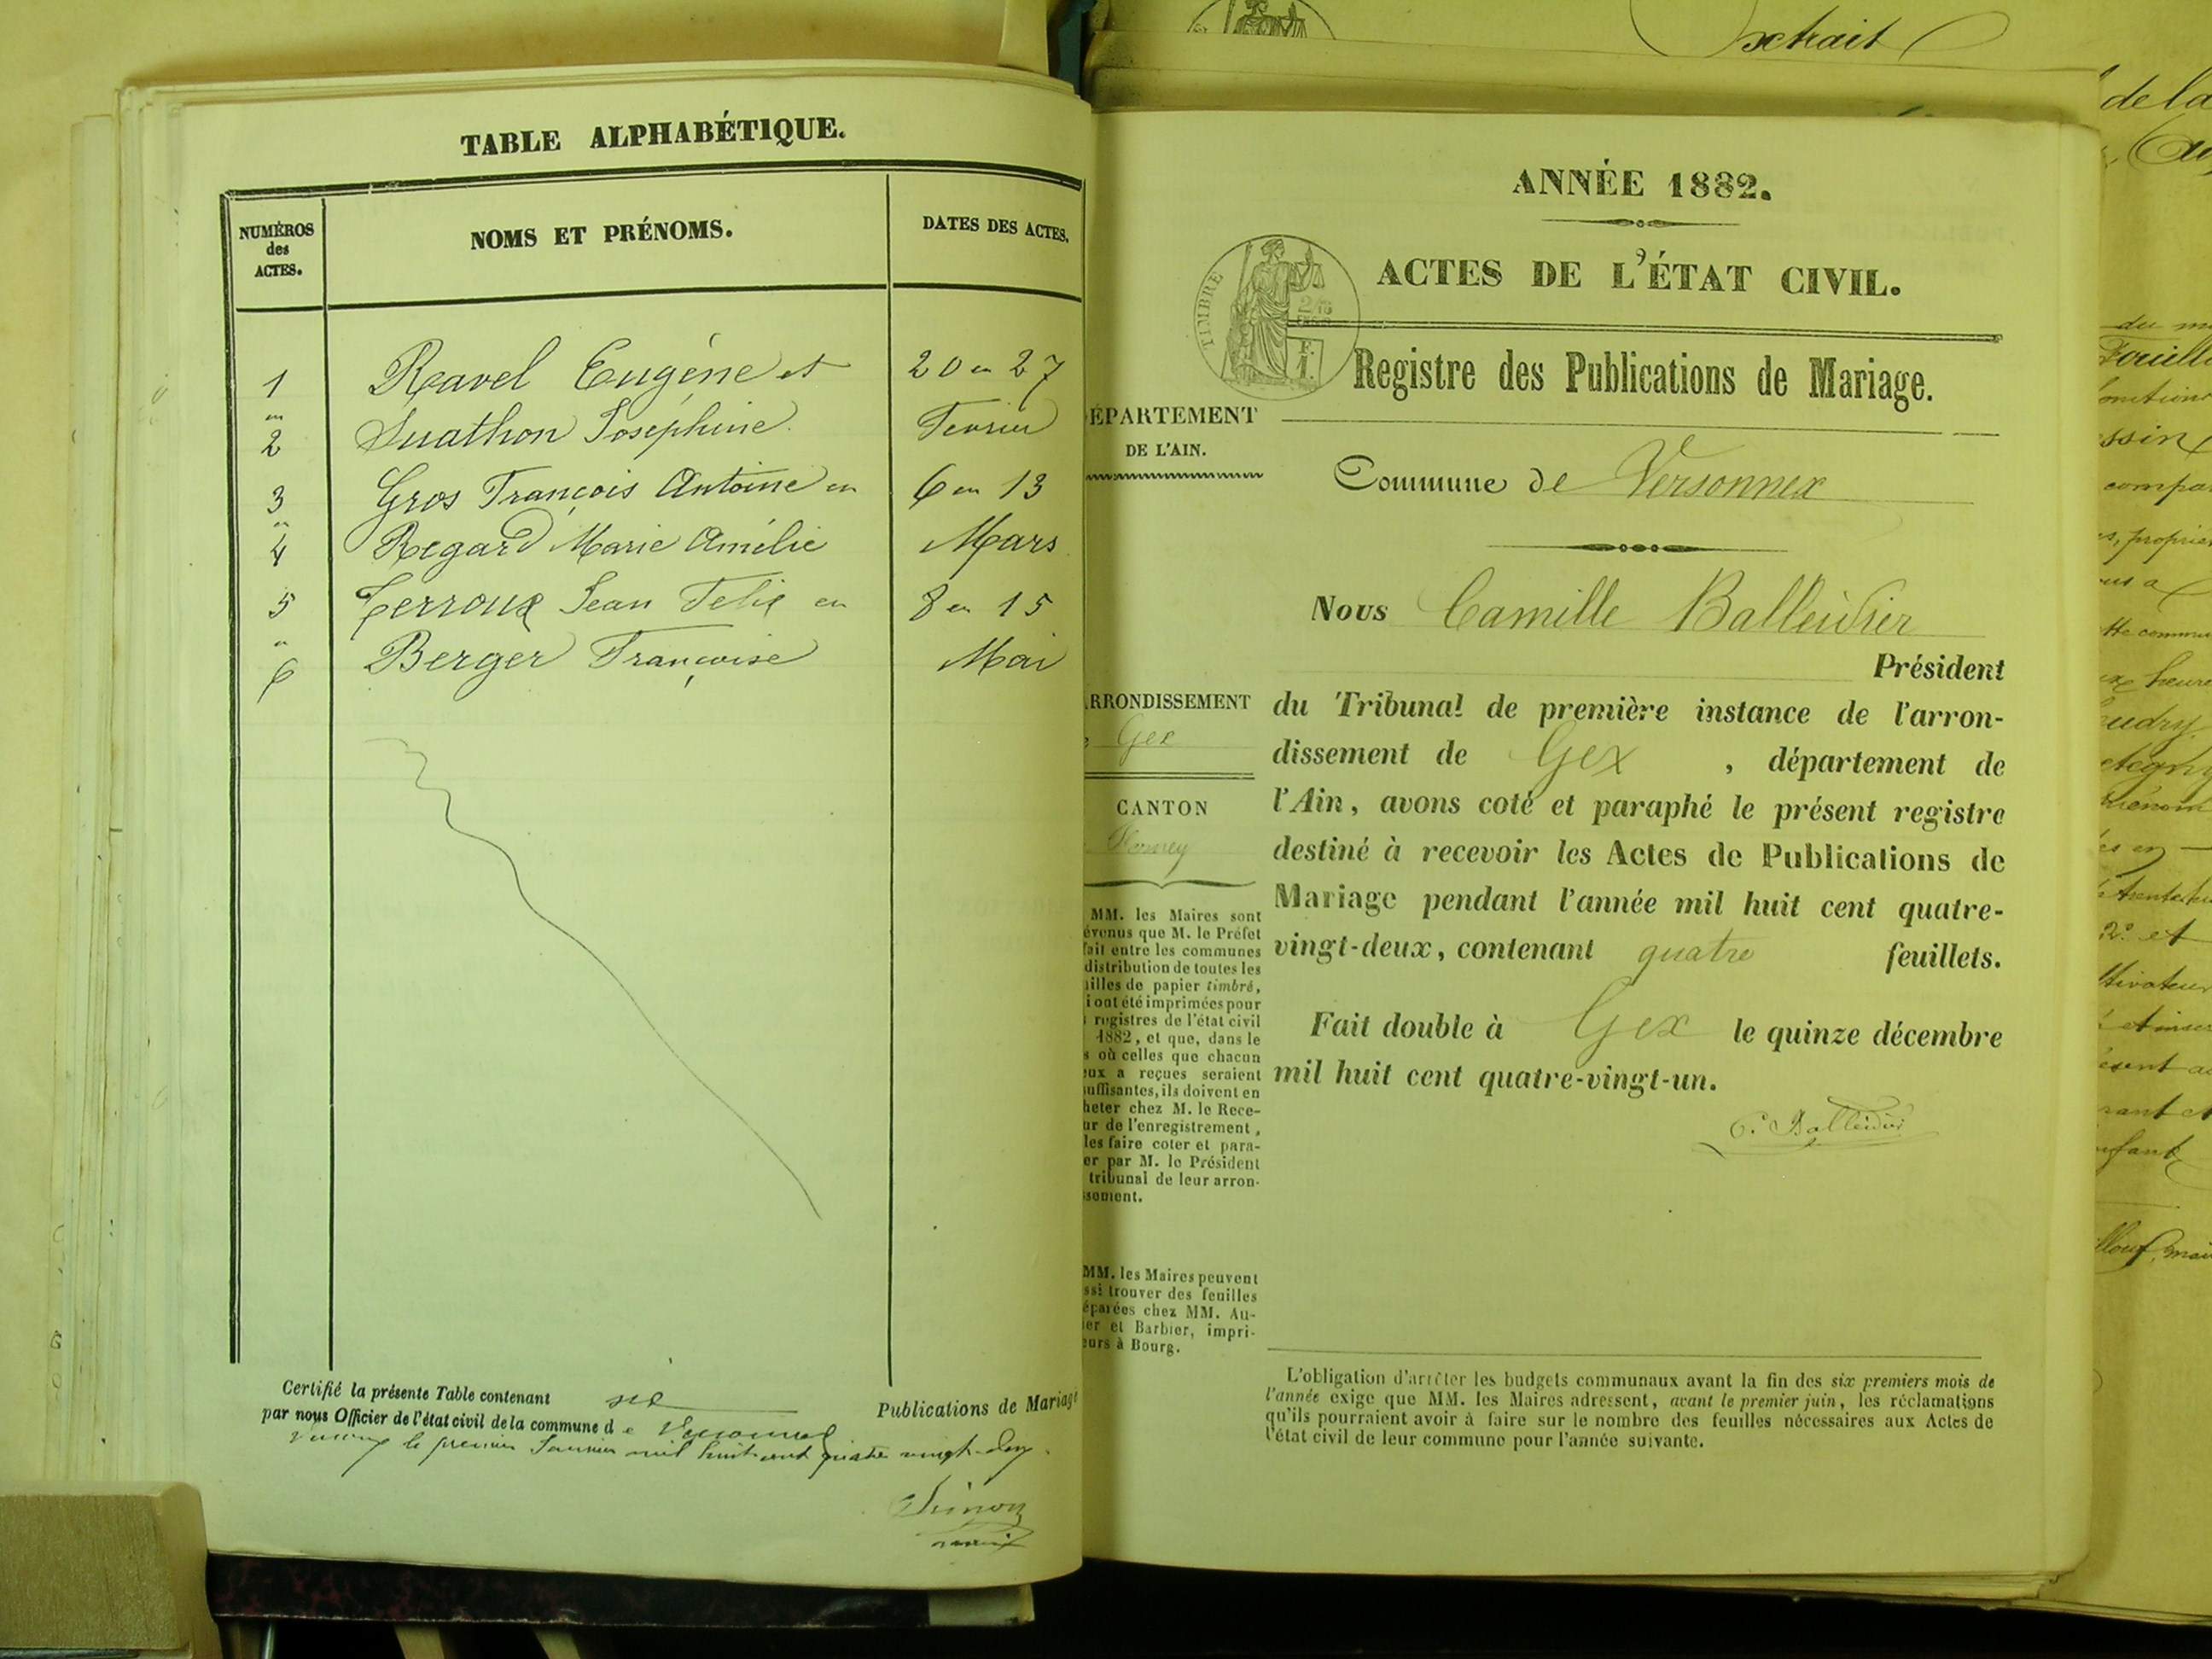 TABLE ALPHABÉTIQUE.
NUMÉROS des ACTES.
NOMS ET PRÉNOMS.
DATES DES ACTES.
1 Ravel Eugène et 20 et 27
2 Suathon Joséphine. Fevrier
3 Gros François Antoine et 6 et 13
4 Regard Marie Amélie Mars
5 Perroux Jean Felix et 8 et 15
6 Berger Françoise Mai
Certifié la présente Table contenant six Publications de Mariage
par nous Officier de l'état civil de la commune de Versonnex
le premier Janvier mil huit cent quatre vingt-deux.
Simon
maire
ANNÉE 1882.
ACTES DE L'ÉTAT CIVIL.
TIMBRE
Registre des Publications de Mariage.
ÉPARTEMENT
DE L'AIN.
Commune de Versonnex
Nous Camille Balleidier
Président
RRONDISSEMENT
Gex
CANTON
Ferney
du Tribunal de première instance de l'arron-
dissement de Gex, département de
l'Ain, avons coté et paraphé le présent registre
destiné à recevoir les Actes de Publications de
Mariage pendant l'année mil huit cent quatre-
vingt-deux, contenant quatre feuillets.
Fait double à Gex le quinze décembre
mil huit cent quatre-vingt-un.
C. Balleidier
MM. les Maires sont
évenus que M. le Préfet
fait entre les communes
distribution de toutes les
illes de papier timbré,
i ont été imprimées pour
registres de l'état civil
1882, et que, dans le
s où celles que chacun
eux a reçues seraient
uffisantes, ils doivent en
heter chez M. le Rece-
ur de l'enregistrement,
les faire coter et para-
er par M. le Président
tribunal de leur arron-
ssement.
MM. les Maires peuvent
ssi trouver des feuilles
éparées chez MM. Au-
ier et Barbier, impri-
eurs à Bourg.
L'obligation d'arrêter les budgets communaux avant la fin des six premiers mois de
l'année exige que MM. les Maires adressent, avant le premier juin, les réclamations
qu'ils pourraient avoir à faire sur le nombre des feuilles nécessaires aux Actes de
l'état civil de leur commune pour l'année suivante.
Extrait
de la
ssin
compa
us a
tte commu
heure
et
enfant